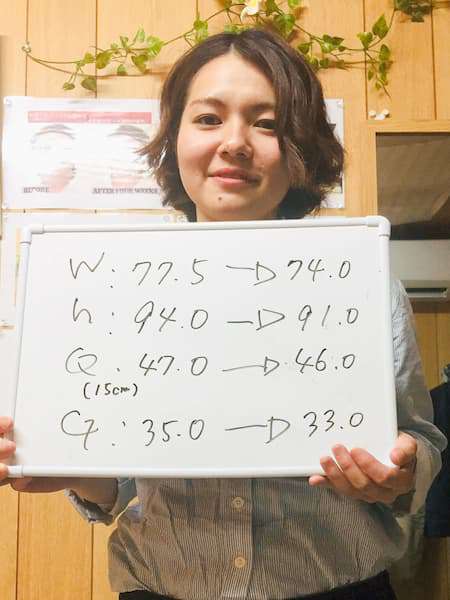 BEFORE
AFTER FOUR WEEKS
W: 77.5 → 74.0
h: 94.0 → 91.0
Q. 47.0 → 46.0
(15cm)
G: 35.0 → 33.0